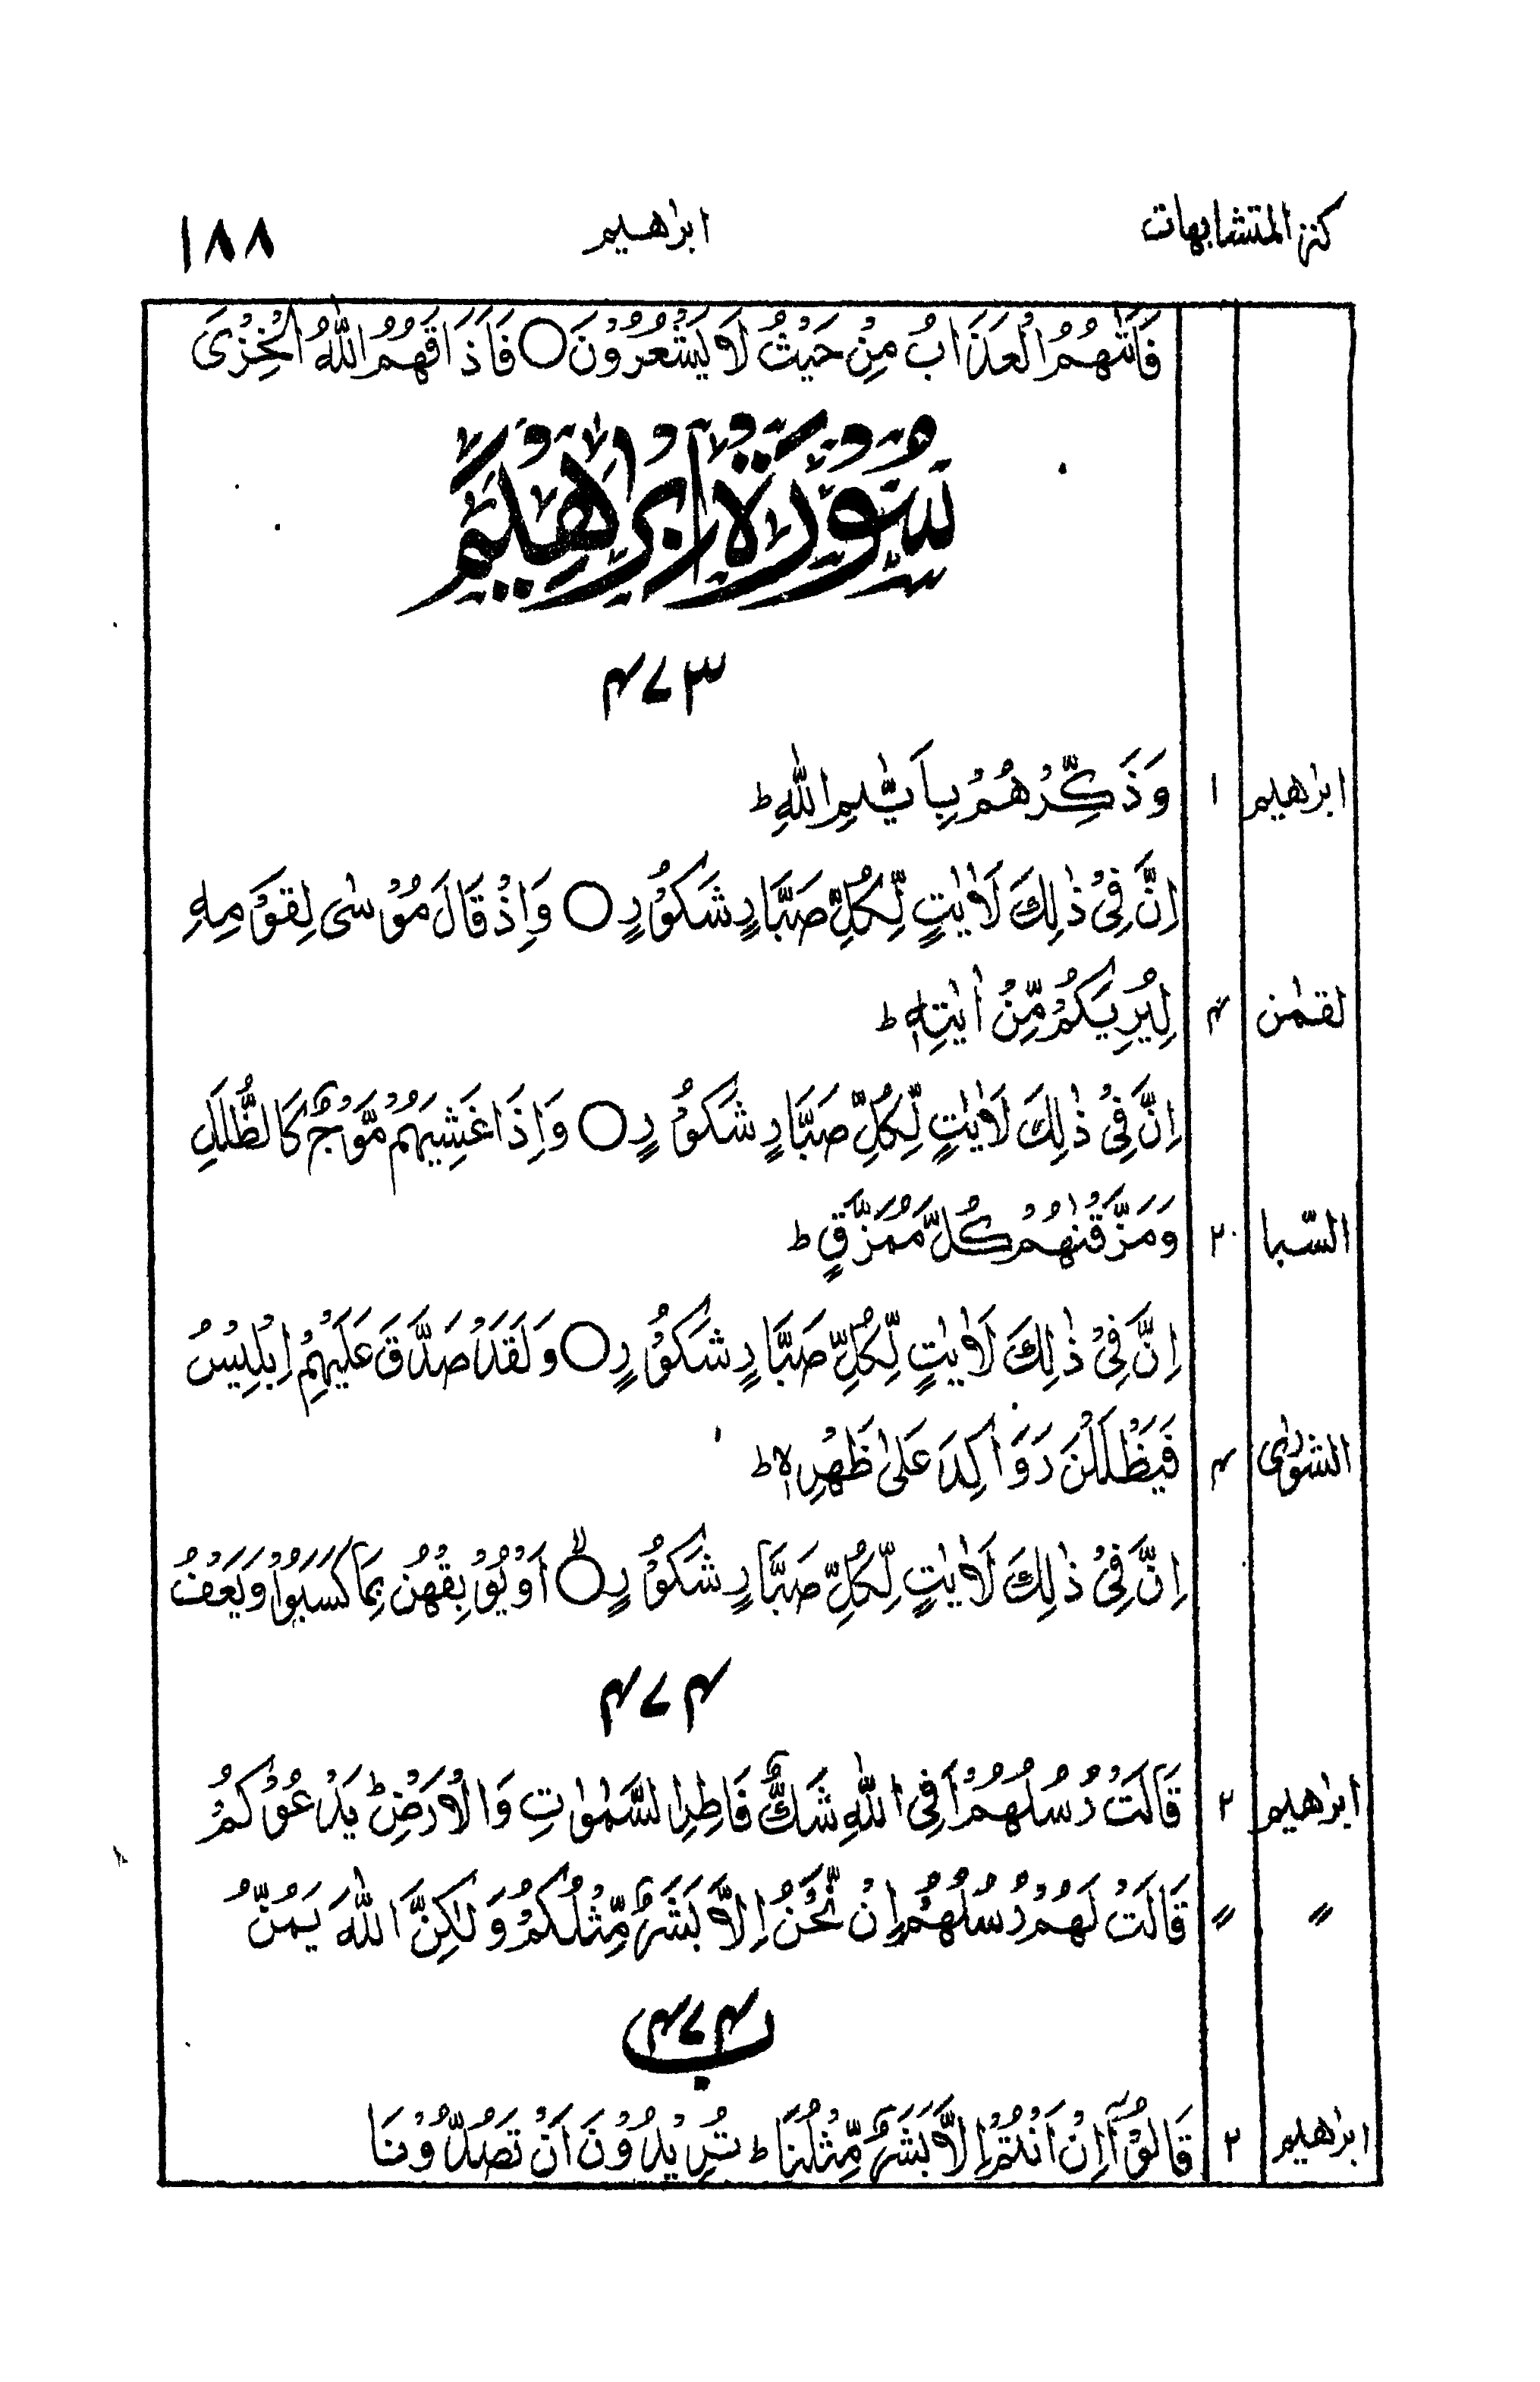 كنز المتشابهات ابرٰهيم ١٨٨
فَاَتٰىهُمُ الْعَذَابُ مِنْ حَيْثُ لَا يَشْعُرُوْنَ○ فَاَذَاقَهُمُ اللّٰهُ الْخِزْىَ
سُوْرَةُ اِبْرٰهِيْمَ
۴۷۳
ابرٰهيم ١ وَذَكِّرْهُمْ بِاَيّٰىمِ اللّٰهِ ؕ
اِنَّ فِىْ ذٰلِكَ لَاٰيٰتٍ لِّكُلِّ صَبَّارٍ شَكُوْرٍ○ وَاِذْ قَالَ مُوْسٰى لِقَوْمِهِ
لقمٰن ۴ لِيُرِيَكُمْ مِّنْ اٰيٰتِهٖ ؕ
اِنَّ فِىْ ذٰلِكَ لَاٰيٰتٍ لِّكُلِّ صَبَّارٍ شَكُوْرٍ○ وَاِذَا غَشِيَهُمْ مَّوْجٌ كَالظُّلَلِ
السّبا ٢٠ وَمَزَّقْنٰهُمْ كُلَّ مُمَزَّقٍ ؕ
اِنَّ فِىْ ذٰلِكَ لَاٰيٰتٍ لِّكُلِّ صَبَّارٍ شَكُوْرٍ○ وَلَقَدْ صَدَّقَ عَلَيْهِمْ اِبْلِيْسُ
الشورٰى ۴ فَيَظْلَلْنَ رَوَاكِدَ عَلٰى ظَهْرِهٖ ؕ
اِنَّ فِىْ ذٰلِكَ لَاٰيٰتٍ لِّكُلِّ صَبَّارٍ شَكُوْرٍ○ اَوْ يُوْبِقْهُنَّ بِمَا كَسَبُوْا وَيَعْفُ
۴۷۴
ابرٰهيم ٢ قَالَتْ رُسُلُهُمْ اَفِى اللّٰهِ شَكٌّ فَاطِرِ السَّمٰوٰتِ وَالْاَرْضِ ؕ يَدْعُوْكُمْ
〃 〃 قَالَتْ لَهُمْ رُسُلُهُمْ اِنْ نَّحْنُ اِلَّا بَشَرٌ مِّثْلُكُمْ وَلٰكِنَّ اللّٰهَ يَمُنُّ
۴۷۴ ب
ابرٰهيم ٢ قَالُوْۤا اِنْ اَنْتُمْ اِلَّا بَشَرٌ مِّثْلُنَا ؕ تُرِيْدُوْنَ اَنْ تَصُدُّوْنَا